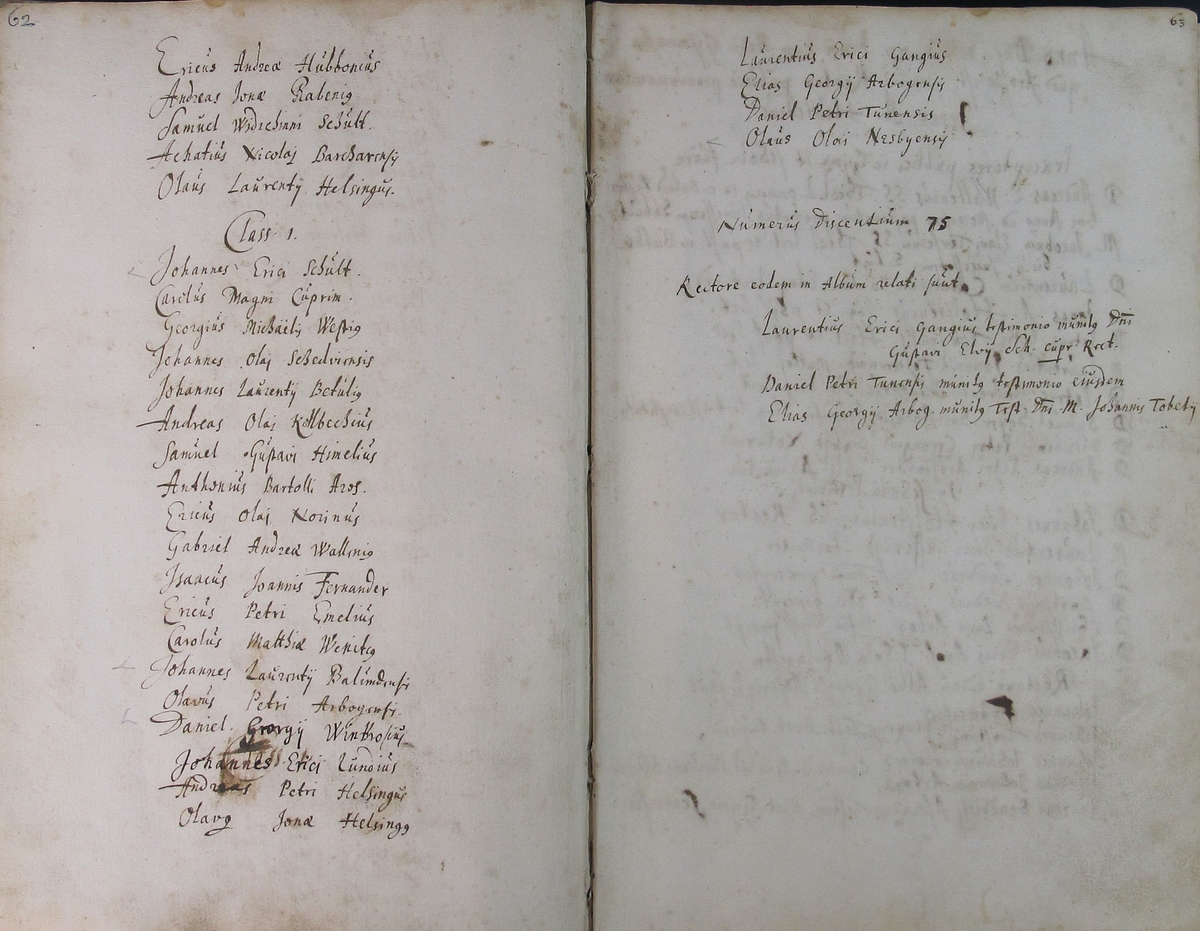 62
Ericus Andreæ Hübbonius
Andreas Jonæ Ralenig
Samuel Schült.
Achatius Nicolaj Barcharensis
Olaus Laurentij Helsingus.
Class 1.
Johannes Erici Schült.
Carolus Magni Cuprim.
Georgius Michaelis Westig
Johannes Olaj Schedviensis
Johannes Laurentij Betulig
Andreas Olaj Kolbechius
Samuel Gustavi Himelius
Anthonius Bartolli Aros.
Ericus Olaj Norinus
Gabriel Andreæ Wallsnig
Isaacus Joannis Fernander
Ericus Petri Emelius
Carolus Matthiæ
Johannes Laurentij
Olavus Petri Arbogensis
Daniel Georgij
Johannes Erici Lundius
Andreas Petri Helsingus
Olavg Jonæ Helsingg
63
Laurentius Erici Gangius
Elias Georgij Arbogensis
Daniel Petri Tunensis
Olaus Olai Nesbyensis
Numerus Discentium 75
Rectore eodem in Album relati sunt
Laurentius Erici Gangius testimonio munitg Dni
Gustavi Elvij Sch. cupr. Rect.
Daniel Petri Tunensis munitg testimonio eiusdem
Elias Georgij Arbog. munitg Test. Dni M. Johannis Tobetij